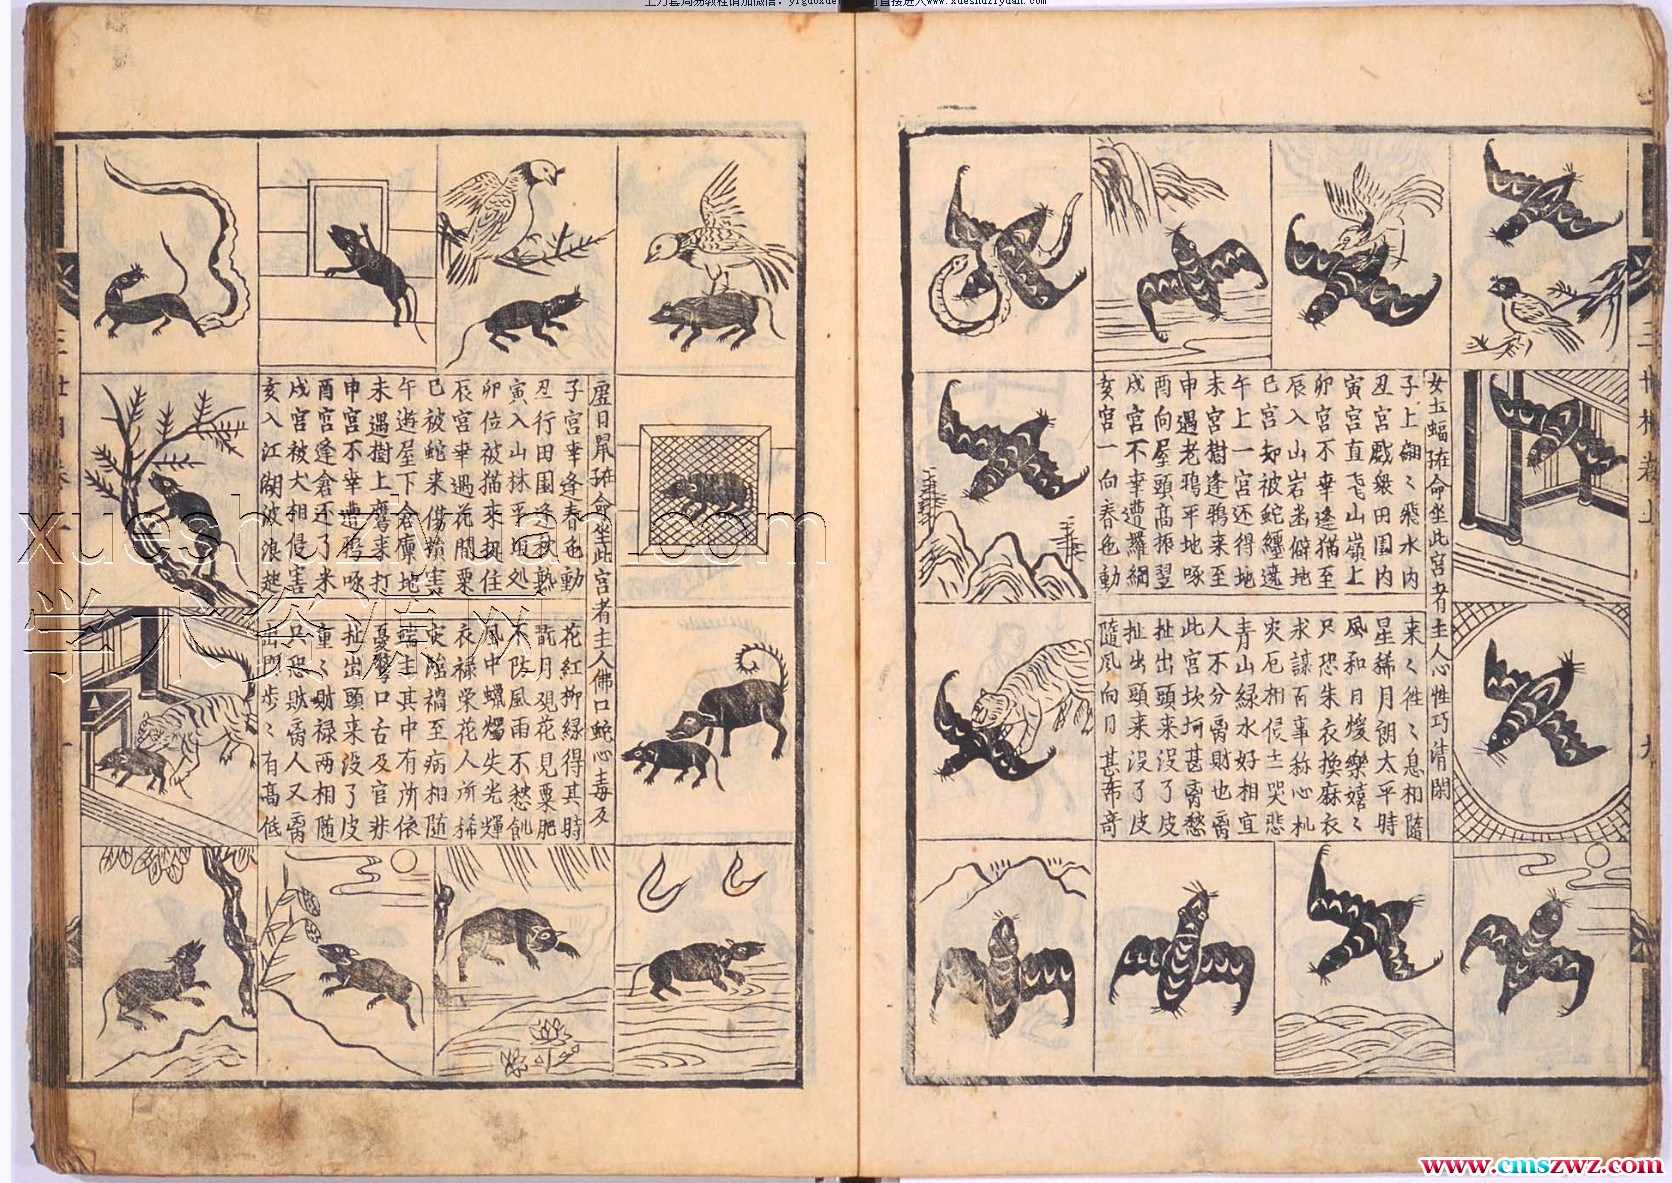 女土蝠 琁命坐此宮者主人心性巧清閑
子上翩〻飛水内 来〻徃〻息相隨
丑宮戲聚田園内 星稀月朗太平時
寅宮直飞山嶺上 風和日煖樂嬉〻
卯宮不幸逢猫至 只恐朱衣換麻衣
辰入山岩出僻地 求謀百事称心机
巳宮却被蛇纏遶 灾厄相侵主哭悲
午上一宮还得地 青山緑水好相宜
未宮樹逢鴉来至 人不分啇財也啇
申遇老鴉平地啄 此宮坎坷甚啇愁
酉向屋頭高振翌 扯出頭来没了皮
戌宮不幸遭羅網 扯出頭来没了皮
亥宮一向春色動 隨風向日甚希奇
三世相卷上
九
虚日鼠 琁命坐此宮者主人佛口蛇心毒及
子宮幸逢春色動 花紅柳緑得其時
丑行田園逢秋熟 翫月观花見粟肥
寅入山林平坦处 不防風雨不愁飢
卯位被猫来捉住 風中蠟燭失光輝
辰宮幸遇花間粟 衣禄荣花人所稀
巳被蛇来傷損害 灾陥禍至病相随
午遊屋下倉廪地 端主其中有所依
未遇樹上鷹来打 憂驚口舌及官非
申宮不幸遭鴉啄 扯出頭来没了皮
酉宮逢倉还了米 重〻財禄两相随
戌宮被犬相侵害 只恐財啇人又啇
亥入江湖波浪趂 出門步〻有高低
xueshuziyuan.com
学术资源网
www.cmszwz.com